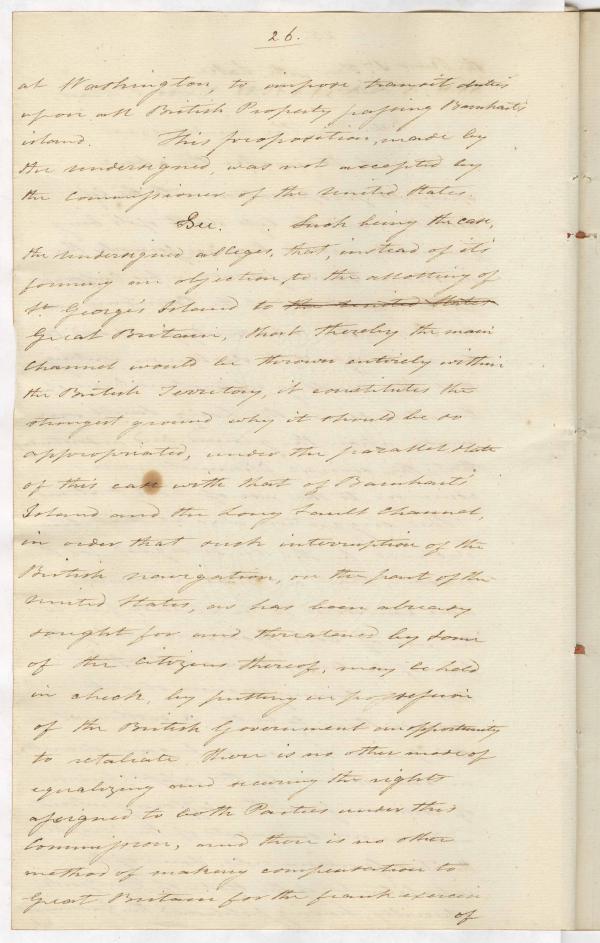 26.
at Washington, to impose transit duties
upon all British Property passing Barnharts
island. This proposition, made by
the undersigned, was not accepted by
the Commissioner of the United States.
Sec. . Such being the case,
the undersigned alleges, that, instead of it's
forming an objection, to the allotting of
St George's Island to the United States
Great Britain, that thereby the main
Channel would be thrown entirely within
the British Territory, it constitutes the
strongest ground why it should be so
appropriated, under the parallel state
of this case with that of Barnhart's
Island and the Long Sault Channel,
in order that such interruption of the
British navigation, on the part of the
United States, as has been already
sought for and threatened by some
of the Citizens thereof, may be held
in check, by putting in possession
of the British Government an opportunity
to retaliate. there is no other mode of
equalizing and securing the rights
assigned to both Parties under this
Commission, and there is no other
method of making compensation to
Great Britain for the frank exercise
of